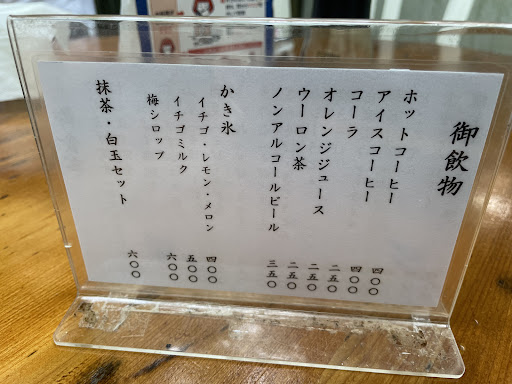 御飲物
ホットコーヒー 四〇〇
アイスコーヒー 四〇〇
コーラ 二五〇
オレンジジュース 二五〇
ウーロン茶 二五〇
ノンアルコールビール 三五〇
かき氷
イチゴ・レモン・メロン 四〇〇
イチゴミルク 五〇〇
梅シロップ 六〇〇
抹茶・白玉セット 六〇〇